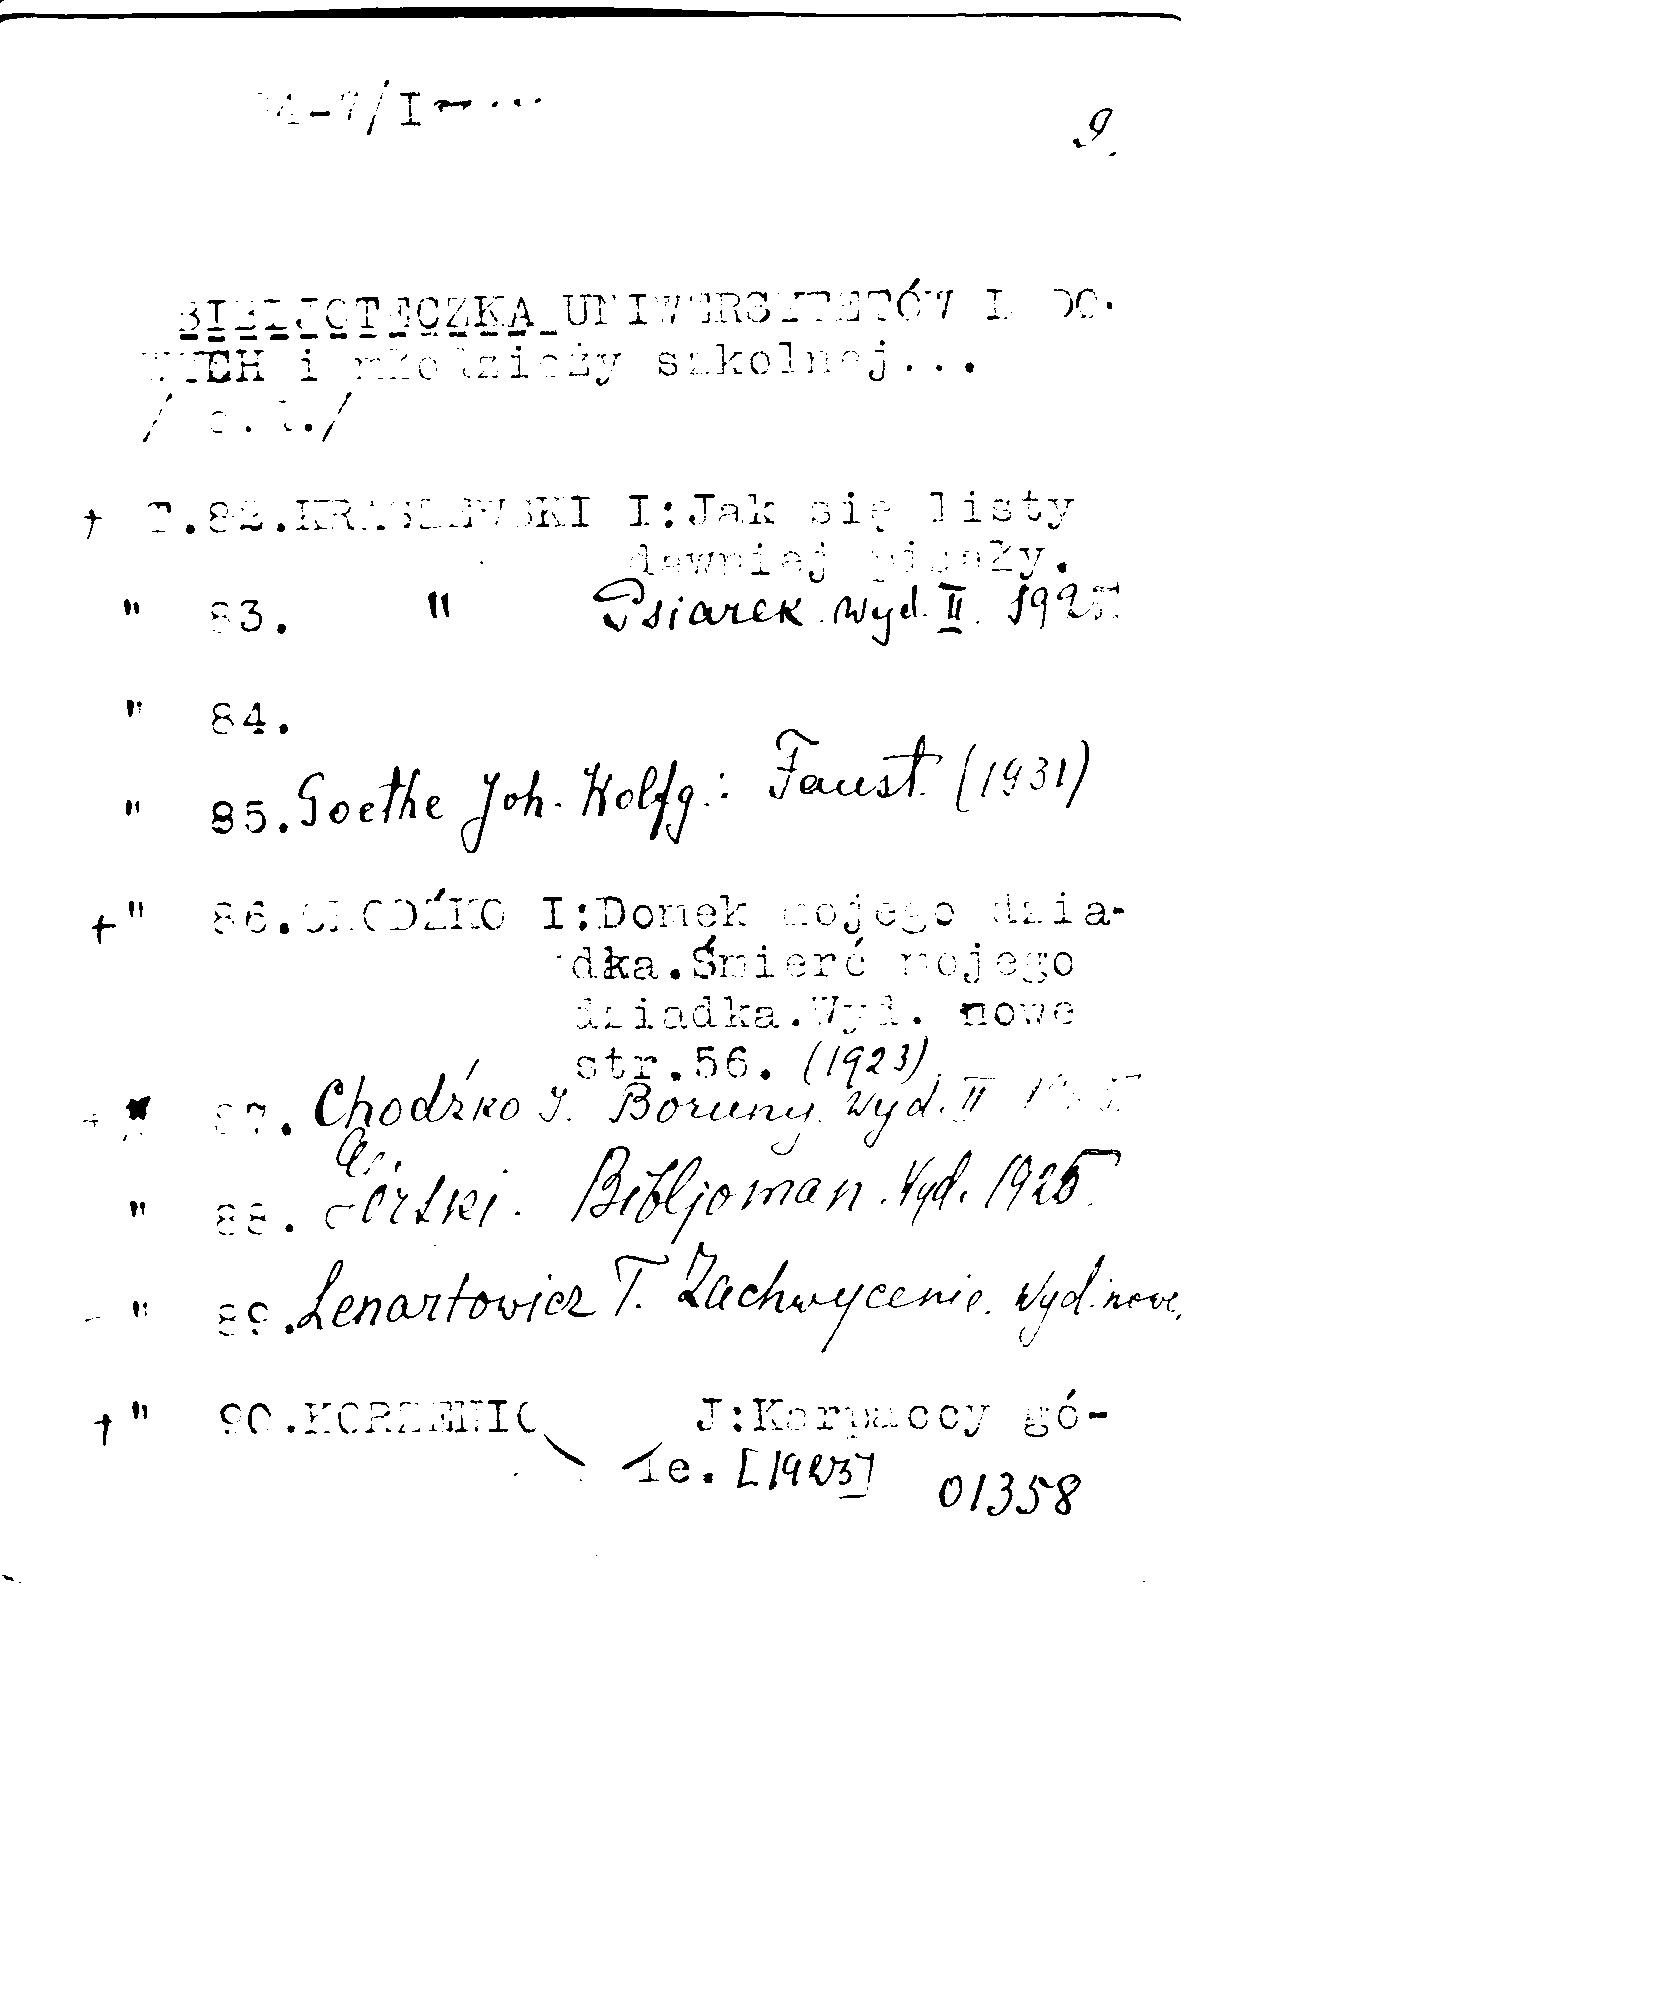 9.
BIBLJOTECZKA UNIWERSYTETÓW
i młodzieży szkolnej...
/ c. d./
+ T.82.KRASZEWSKI I:Jak się listy
dawniej pisały.
" 83. " Psiarek wyd. II. 1925
" 84.
" 85. Goethe Joh. Wolfg.: Faust (1931)
+ " 86.CHODŹKO I:Domek mojego dzia-
dka.Śmierć mojego
dziadka.Wyd. nowe
str.56. (1923)
+ " 87. Chodźko I. Boruny. Wyd. II
" 88. Górski. Bibljoman. Wyd. 1925.
- " 89. Lenartowicz T. Zachwycenie. Wyd. nowe.
+ " 90. J:Karpaccy gó-
le. [1923] 01358